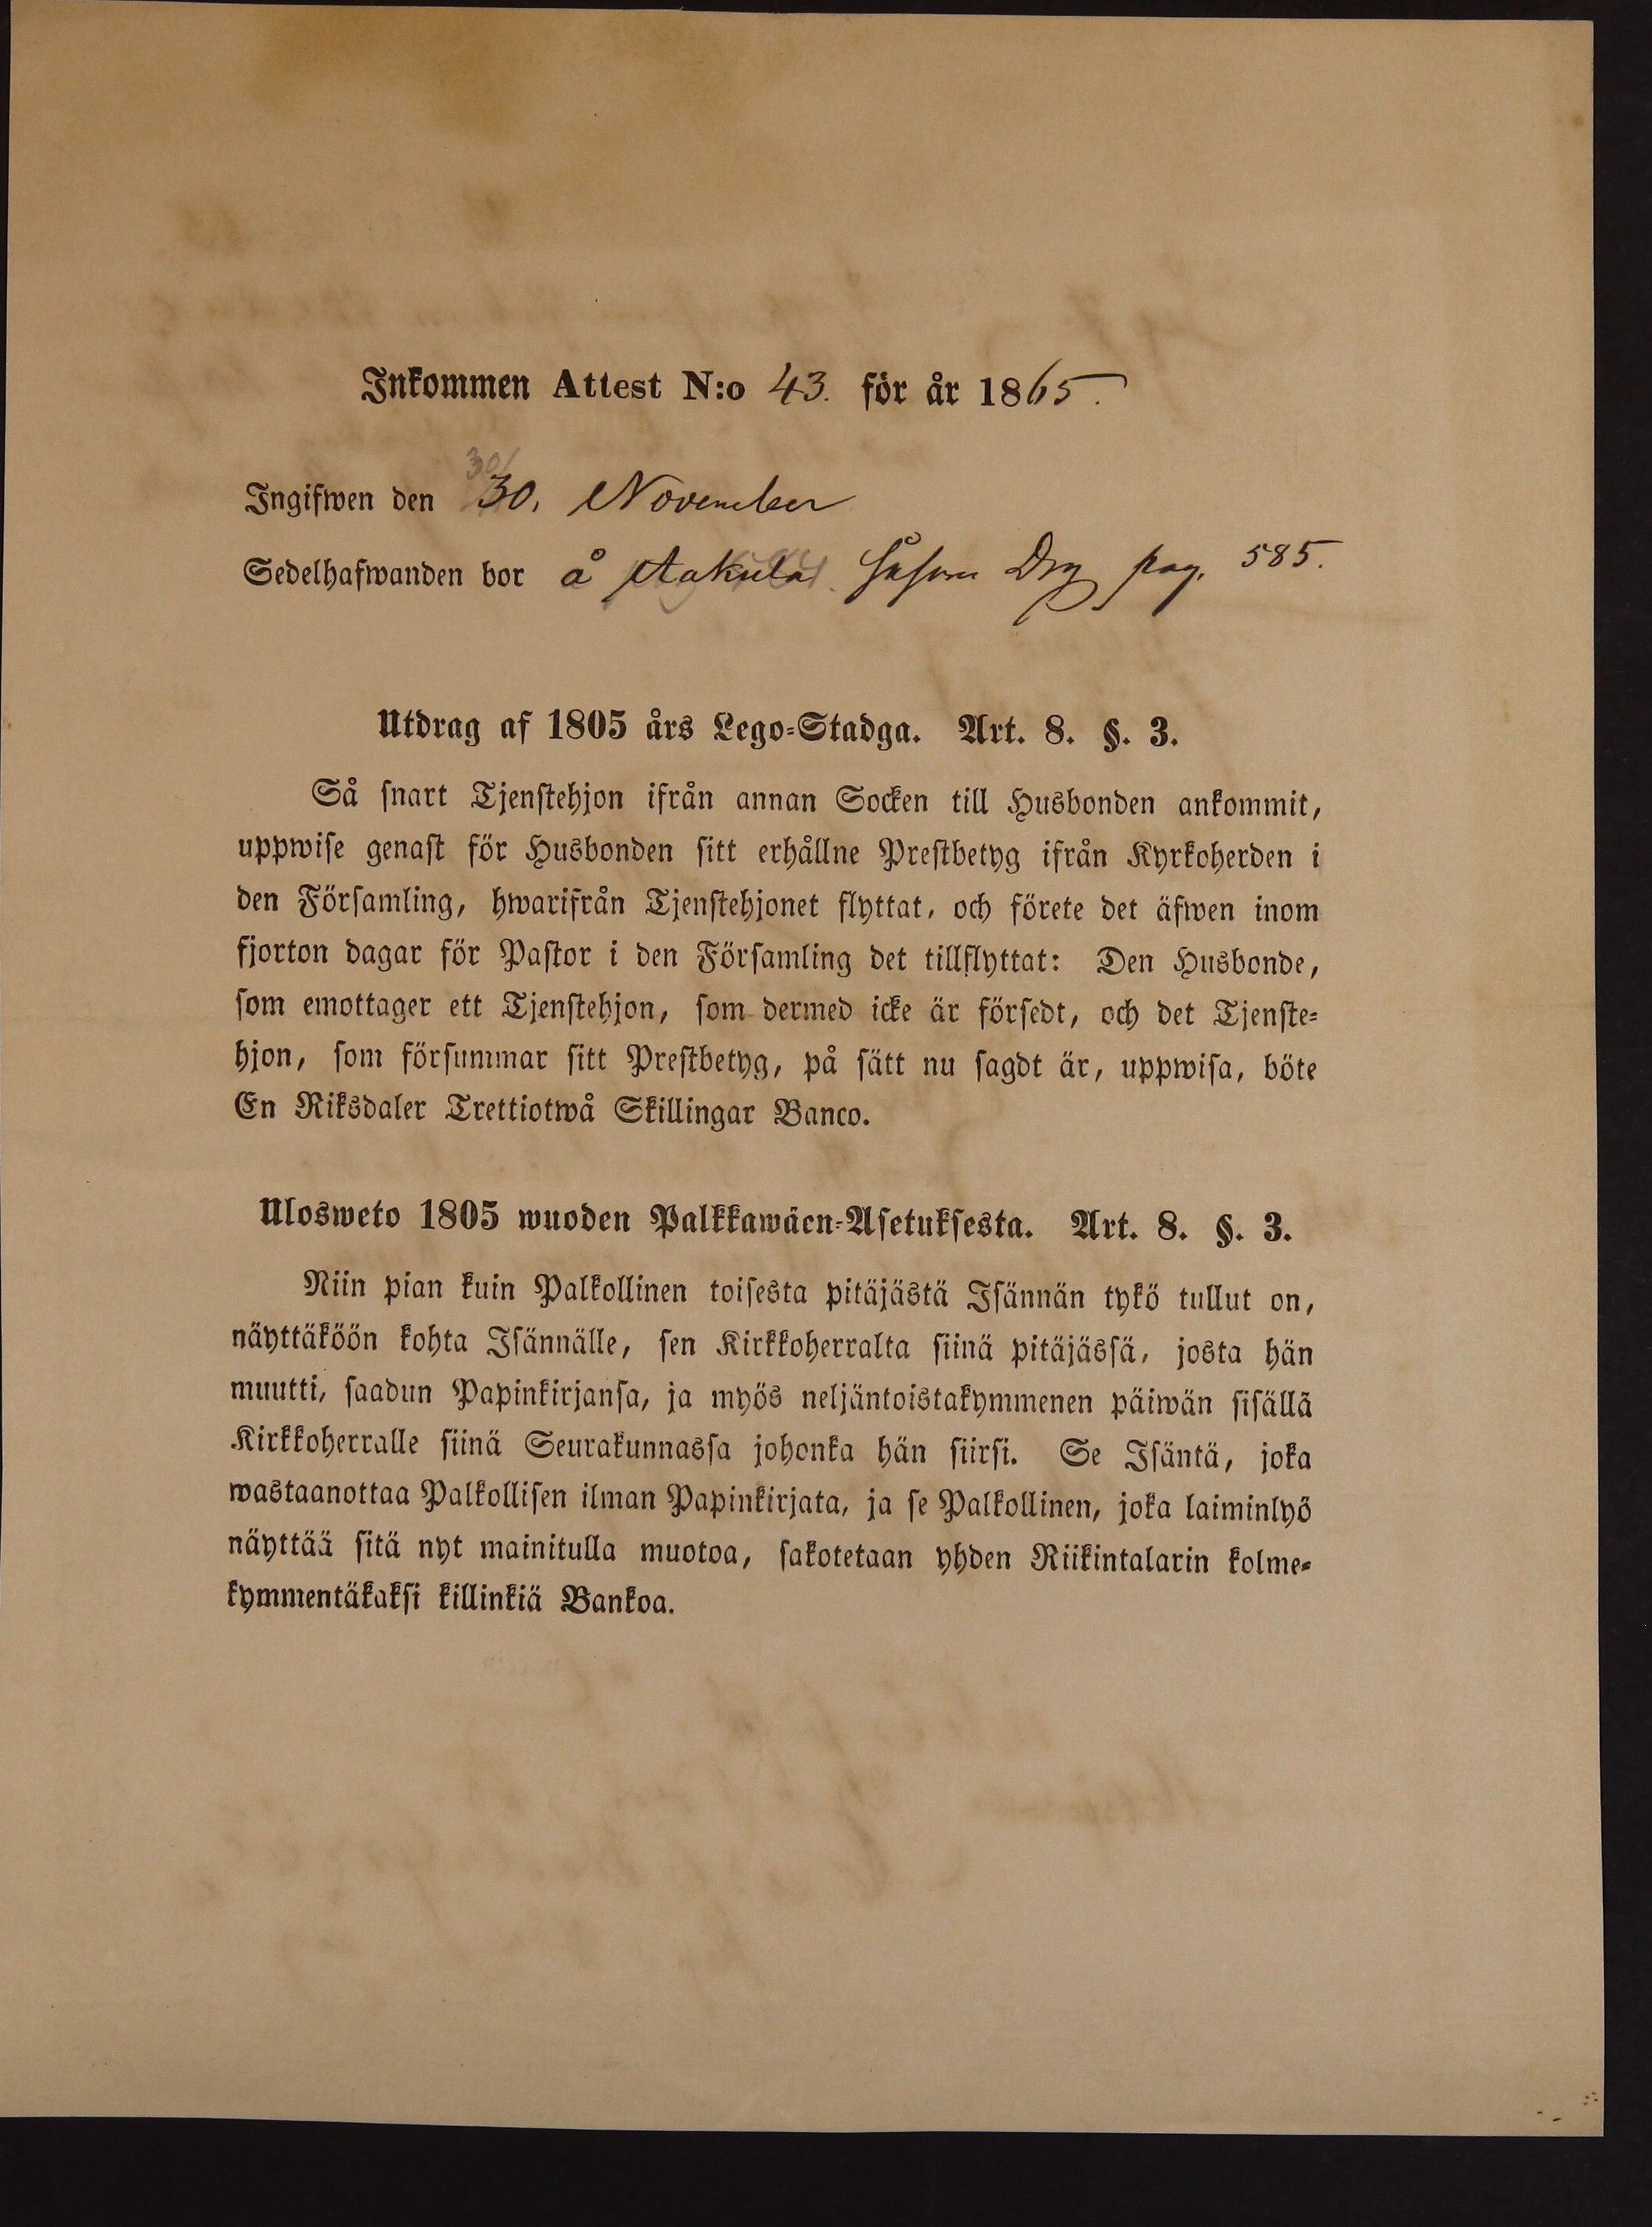 Inkommen Attest N:o 43. för år 1865.
30/
Ingifwen den 30. November
Sedelhafwanden bor å Aakula såsom Drg pag. 585.
Utdrag af 1805 års Lego-Stadga. Art. 8. §. 3.
Så snart Tjenstehjon ifrån annan Socken till Husbonden ankommit,
uppwise genast för Husbonden sitt erhållne Prestbetyg ifrån Kyrkoherden i
den Församling, hwarifrån Tjenstehjonet flyttat, och förete det äfwen inom
fjorton dagar för Pastor i den Församling det tillflyttat: Den Husbonde,
som emottager ett Tjenstehjon, som dermed icke är försedt, och det Tjenste-
hjon, som försummar sitt Prestbetyg, på sätt nu sagdt är, uppwisa, böte
En Riksdaler Trettiotwå Skillingar Banco.
Ulosweto 1805 wuoden Palkkawäen-Asetuksesta. Art. 8. §. 3.
Niin pian kuin Palkollinen toisesta pitäjästä Isännän tykö tullut on,
näyttäköön kohta Isännälle, sen Kirkkoherralta siinä pitäjässä, josta hän
muutti, saadun Papinkirjansa, ja myös neljäntoistakymmenen päiwän sisällä
Kirkkoherralle siinä Seurakunnassa johonka hän siirsi. Se Isäntä, joka
wastaanottaa Palkollisen ilman Papinkirjata, ja se Palkollinen, joka laiminlyö
näyttää sitä nyt mainitulla muotoa, sakotetaan yhden Riikintalarin kolme-
kymmentäkaksi killinkiä Bankoa.